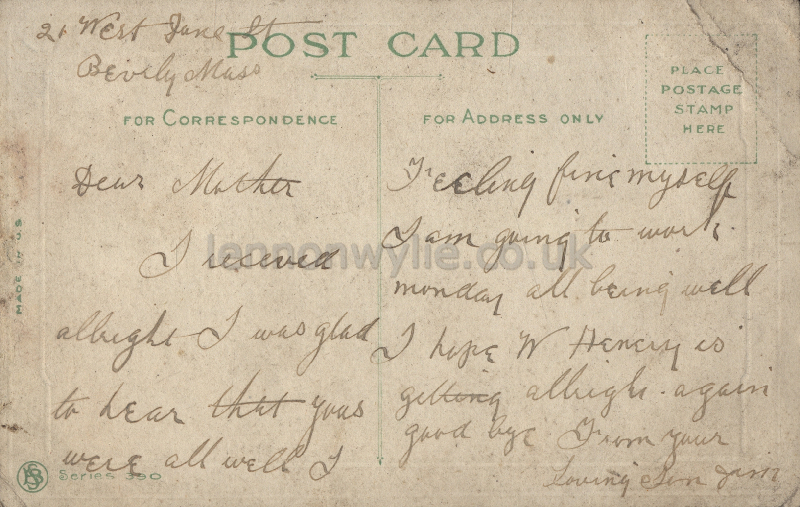 21 West Dane St
Bevily Mass
POST CARD
FOR CORRESPONDENCE
FOR ADDRESS ONLY
PLACE
POSTAGE
STAMP
HERE
Dear Mother
I receved
allright I was glad
to hear that yous
were all well I
Feeling fine myself
I am going to work
monday all being well
I hope W Henery is
getting allright again
good bye From your
Loving Son Jim
MADE IN U.S
Series 390
lennonwylie.co.uk